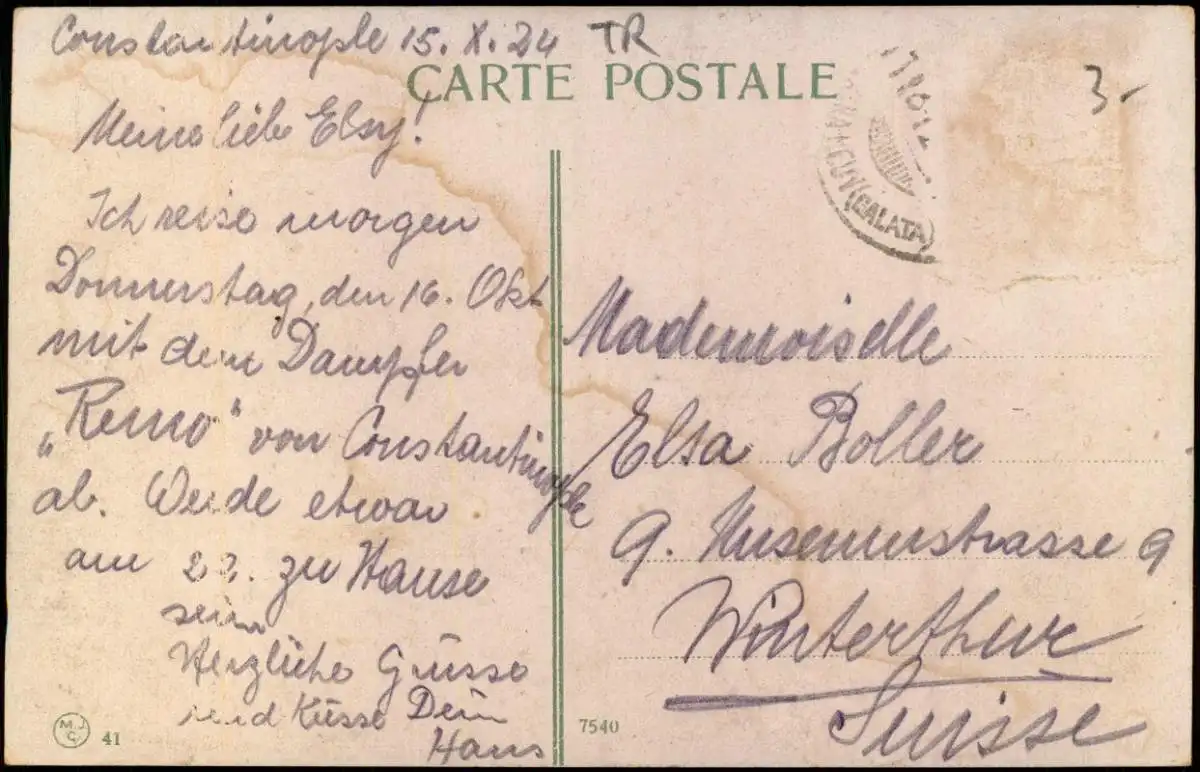 Constantinople 15. X. 24 TR
CARTE POSTALE
3.-
Meine liebe Elsy!
Ich reise morgen
Donnerstag, den 16. Okt
mit dem Dampfer
„Remo" von Constantinople
ab. Werde etwa
am 23. zu Hause
sein
Herzliche Grüsse
und Küsse Dein
Hans
(GALATA)
Mademoiselle
Elsa Boller
9. Museumstrasse 9
Winterthur
Suisse
M.J.C.
41
7540